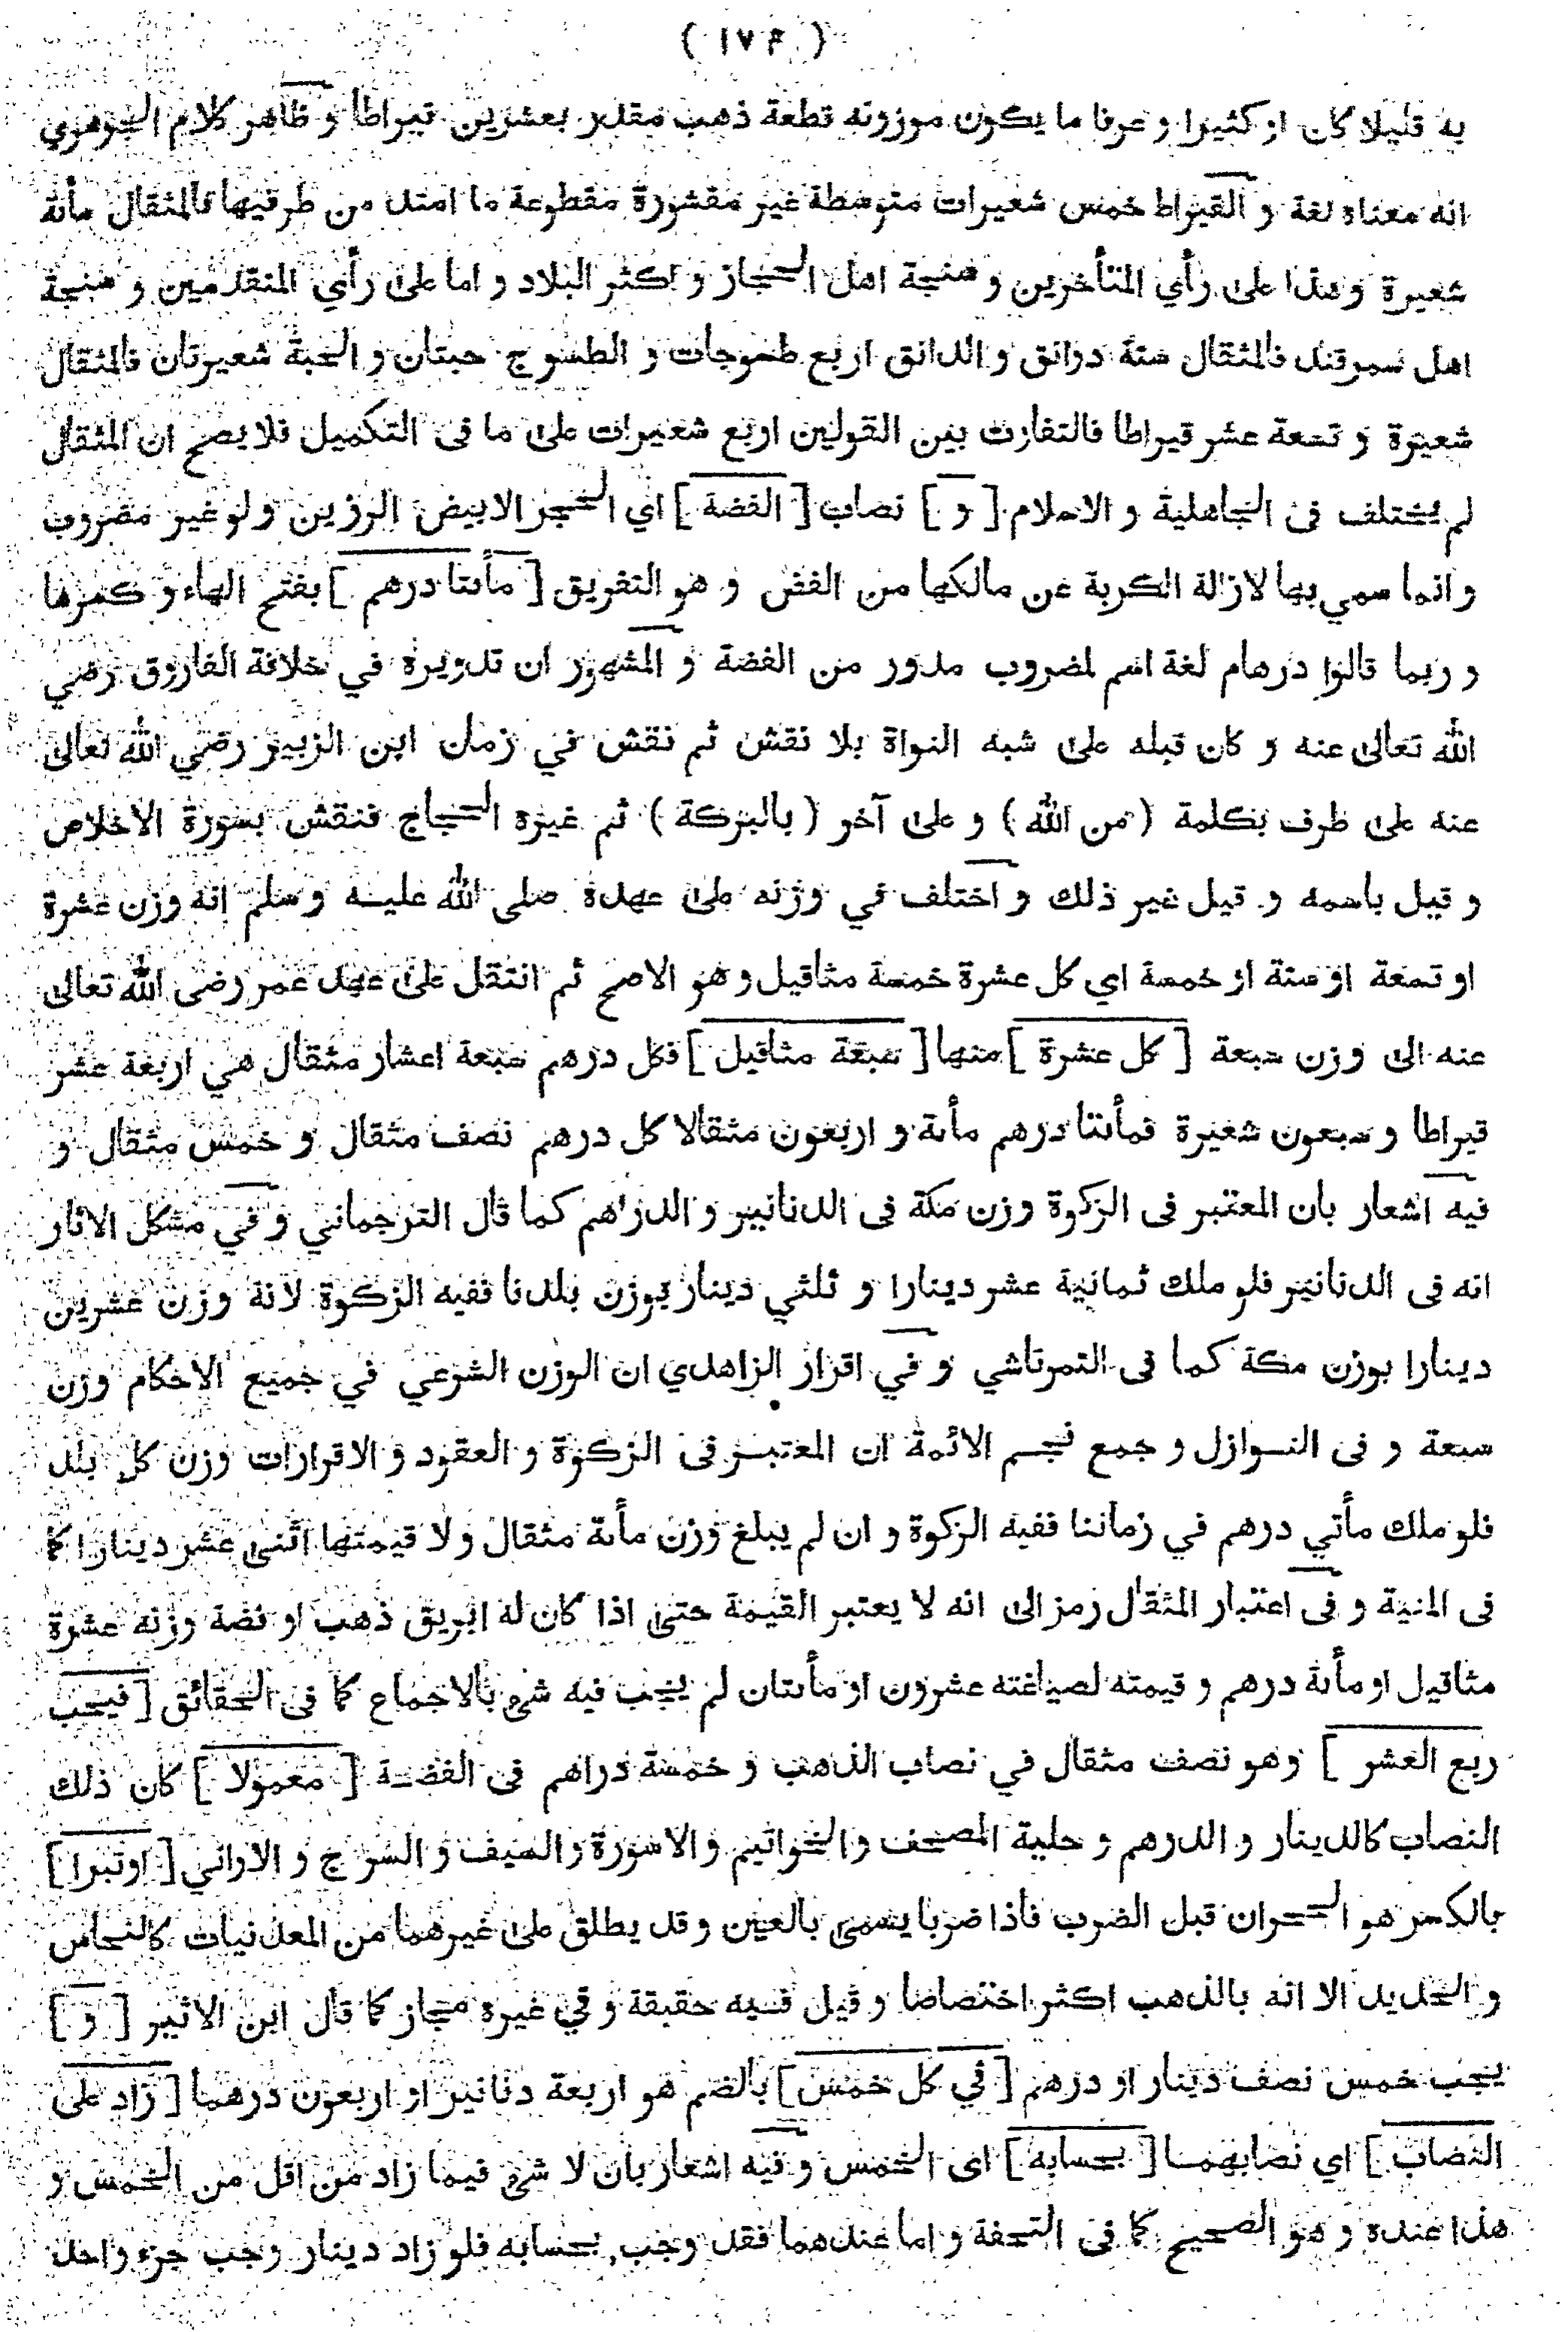 ( ١٧٤ )
به قليلا كان او كثيرا و عرفا ما يكون موزونه قطعة ذهب مقدر بعشرين قيراطا و ظاهر كلام الجوهري
انه معناه لغة و القيراط خمس شعيرات متوسطة غير مقشورة مقطوعة ما امتد من طرفيها فالمثقال مأئة
شعيرة و هذا على رأي المتأخرين و سنجة اهل الحجاز و اكثر البلاد و اما على رأي المتقدمين و سنجة
اهل سمرقند فالمثقال ستة دوانق و الدانق اربع طسوجات و الطسوج حبتان و الحبة شعيرتان فالمثقال
شعيرة و تسعة عشر قيراطا فالتفاوت بين القولين اربع شعيرات على ما فى التكميل فلا يصح ان المثقال
لم يختلف فى الجاهلية و الاسلام [ و ] نصاب [ الفضة ] اي الحجر الابيض الرزين ولو غير مضروب
و انما سمي بها لازالة الكربة عن مالكها من الفض و هو التفريق [ مأئتا درهم ] بفتح الهاء و كسرها
و ربما قالوا درهام لغة اسم لمضروب مدور من الفضة و المشهور ان تدويره في خلافة الفاروق رضي
الله تعالى عنه و كان قبله على شبه النواة بلا نقش ثم نقش في زمان ابن الزبير رضي الله تعالى
عنه على طرف بكلمة ( من الله ) و على آخر ( بالبركة ) ثم غيره الحجاج فنقش بسورة الاخلاص
و قيل باسمه و قيل غير ذلك و اختلف في وزنه على عهده صلى الله عليه و سلم انه وزن عشرة
او تسعة او ستة او خمسة اي كل عشرة خمسة مثاقيل و هو الاصح ثم انتقل على عهد عمر رضى الله تعالى
عنه الى وزن سبعة [ كل عشرة ] منها [ سبعة مثاقيل ] فكل درهم سبعة اعشار مثقال هي اربعة عشر
قيراطا و سبعون شعيرة فمأئتا درهم مأئة و اربعون مثقالا كل درهم نصف مثقال و خمس مثقال و
فيه اشعار بان المعتبر فى الزكوة وزن مكة فى الدنانير و الدراهم كما قال الترجماني و في مشكل الاثار
انه فى الدنانير فلو ملك ثمانية عشر دينارا و ثلثي دينار بوزن بلدنا ففيه الزكوة لانه وزن عشرين
دينارا بوزن مكة كما فى التمرتاشي و في اقرار الزاهدي ان الوزن الشرعي في جميع الاحكام وزن
سبعة و فى النوازل و جمع نجم الائمة ان المعتبر فى الزكوة و العقود و الاقرارات وزن كل بلد
فلو ملك مأتي درهم في زماننا ففيه الزكوة و ان لم يبلغ وزن مأئة مثقال و لا قيمتها اثنى عشر دينارا كما
فى المنية و فى اعتبار المثقال رمز الى انه لا يعتبر القيمة حتى اذا كان له ابريق ذهب او فضة وزنه عشرة
مثاقيل او مأئة درهم و قيمته لصياغته عشرون او مأئتان لم يجب فيه شئ بالاجماع كما فى الحقائق [ فيجب
ربع العشر ] وهو نصف مثقال في نصاب الذهب و خمسة دراهم فى الفضة [ معمولا ] كان ذلك
النصاب كالدينار و الدرهم و حلية المصحف و الخواتيم و الاسورة و السيف و السرج و الاواني [ او تبرا ]
بالكسر هو الحجران قبل الضرب فاذا ضربا يسمى بالعين و قد يطلق على غيرهما من المعدنيات كالنحاس
و الحديد الا انه بالذهب اكثر اختصاصا و قيل فيه حقيقة و في غيره مجاز كما قال ابن الاثير [ و ]
يجب خمس نصف دينار او درهم [ في كل خمس ] بالضم هو اربعة دنانير او اربعون درهما [ زاد على
النصاب ] اي نصابهما [ بحسابه ] اى الخمس و فيه اشعار بان لا شئ فيما زاد من اقل من الخمس و
هذا عنده و هو الصحيح كما فى التحفة و اما عندهما فقد وجب بحسابه فلو زاد دينار وجب جزء واحد